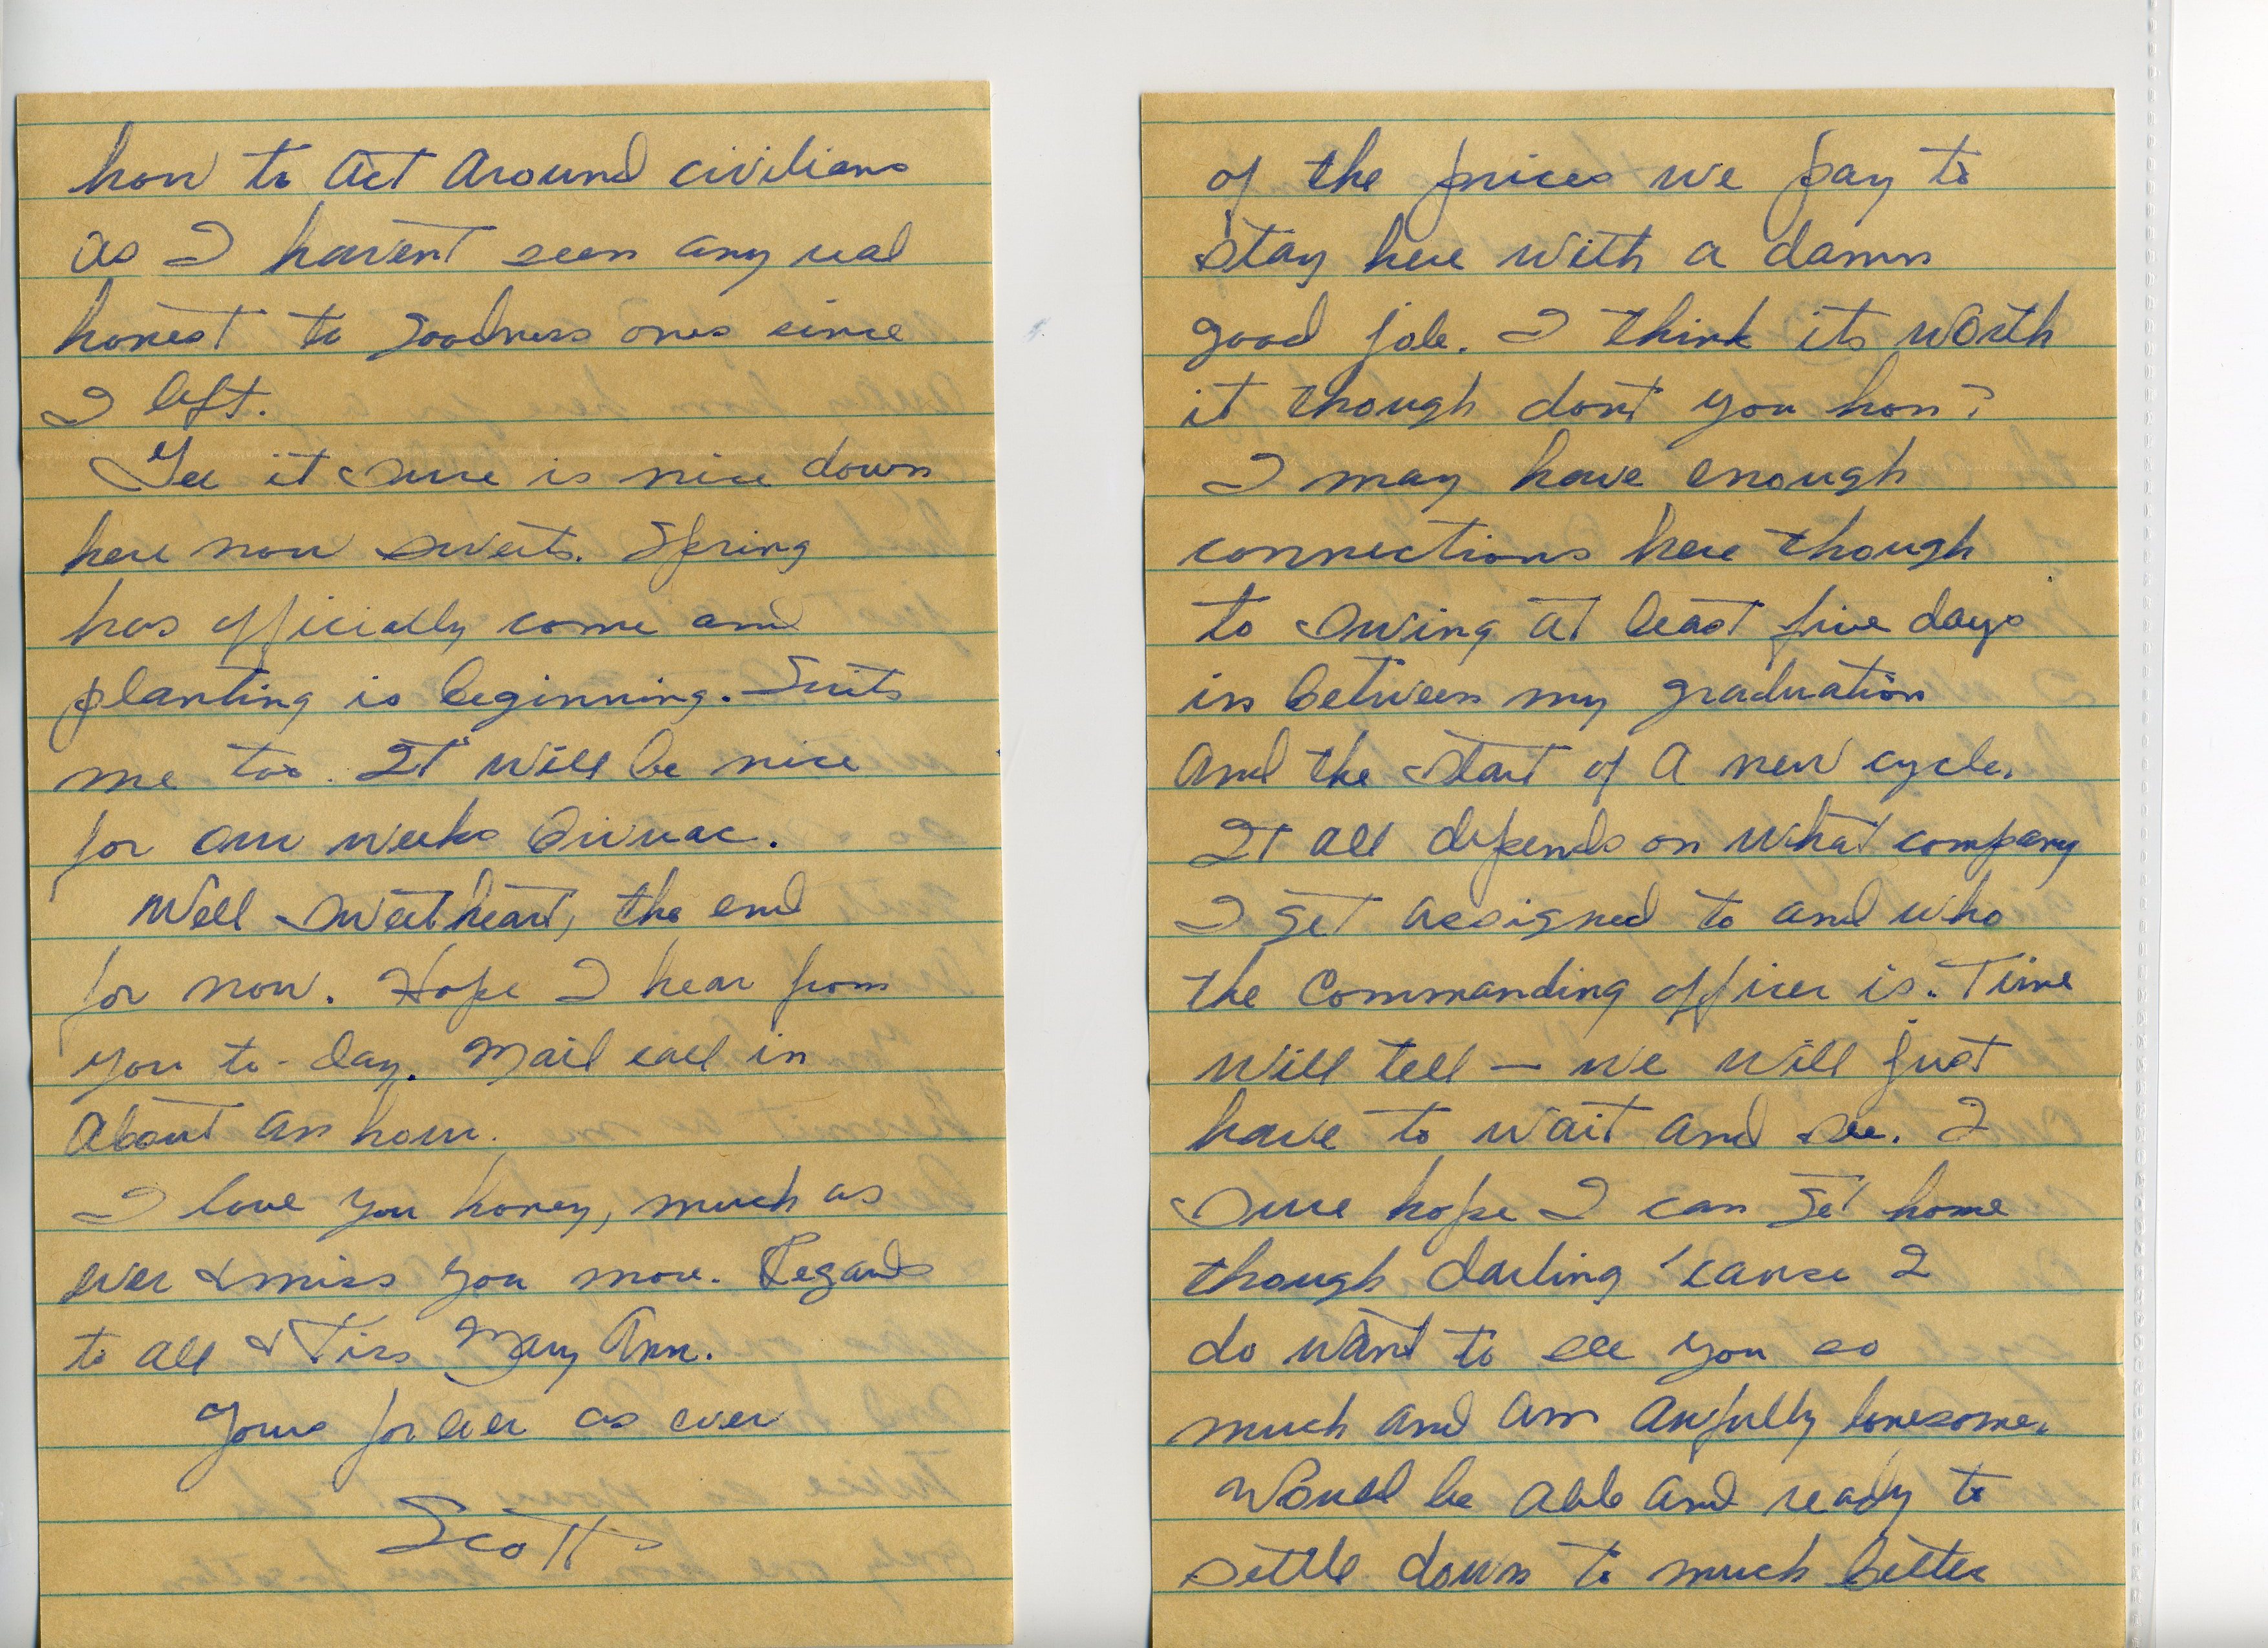 how to act around civilians
as I havent seen any real
honest to goodness ones since
I left.
Gee it sure is nice down
here now sweets. Spring
has officially come and
planting is beginning. Suits
me too. It will be nice
for our weeks bivuac.
Well sweetheart, the end
for now. Hope I hear from
you to-day. Mail call in
about an hour.
I love you honey, much as
ever & miss you more. Regards
to all & Tiss Mary Ann.
Yours forever as ever
Scott
of the prices we pay to
stay here with a damn
good job. I think its worth
it though dont you hon?
I may have enough
connections here though
to swing at least five days
in between my graduation
and the start of a new cycle.
It all depends on what company
I get assigned to and who
the Commanding officer is. Time
will tell — we will just
have to wait and see. I
sure hope I can get home
though darling 'cause I
do want to see you so
much and am awfully lonesome.
Would be able and ready to
settle down to much better